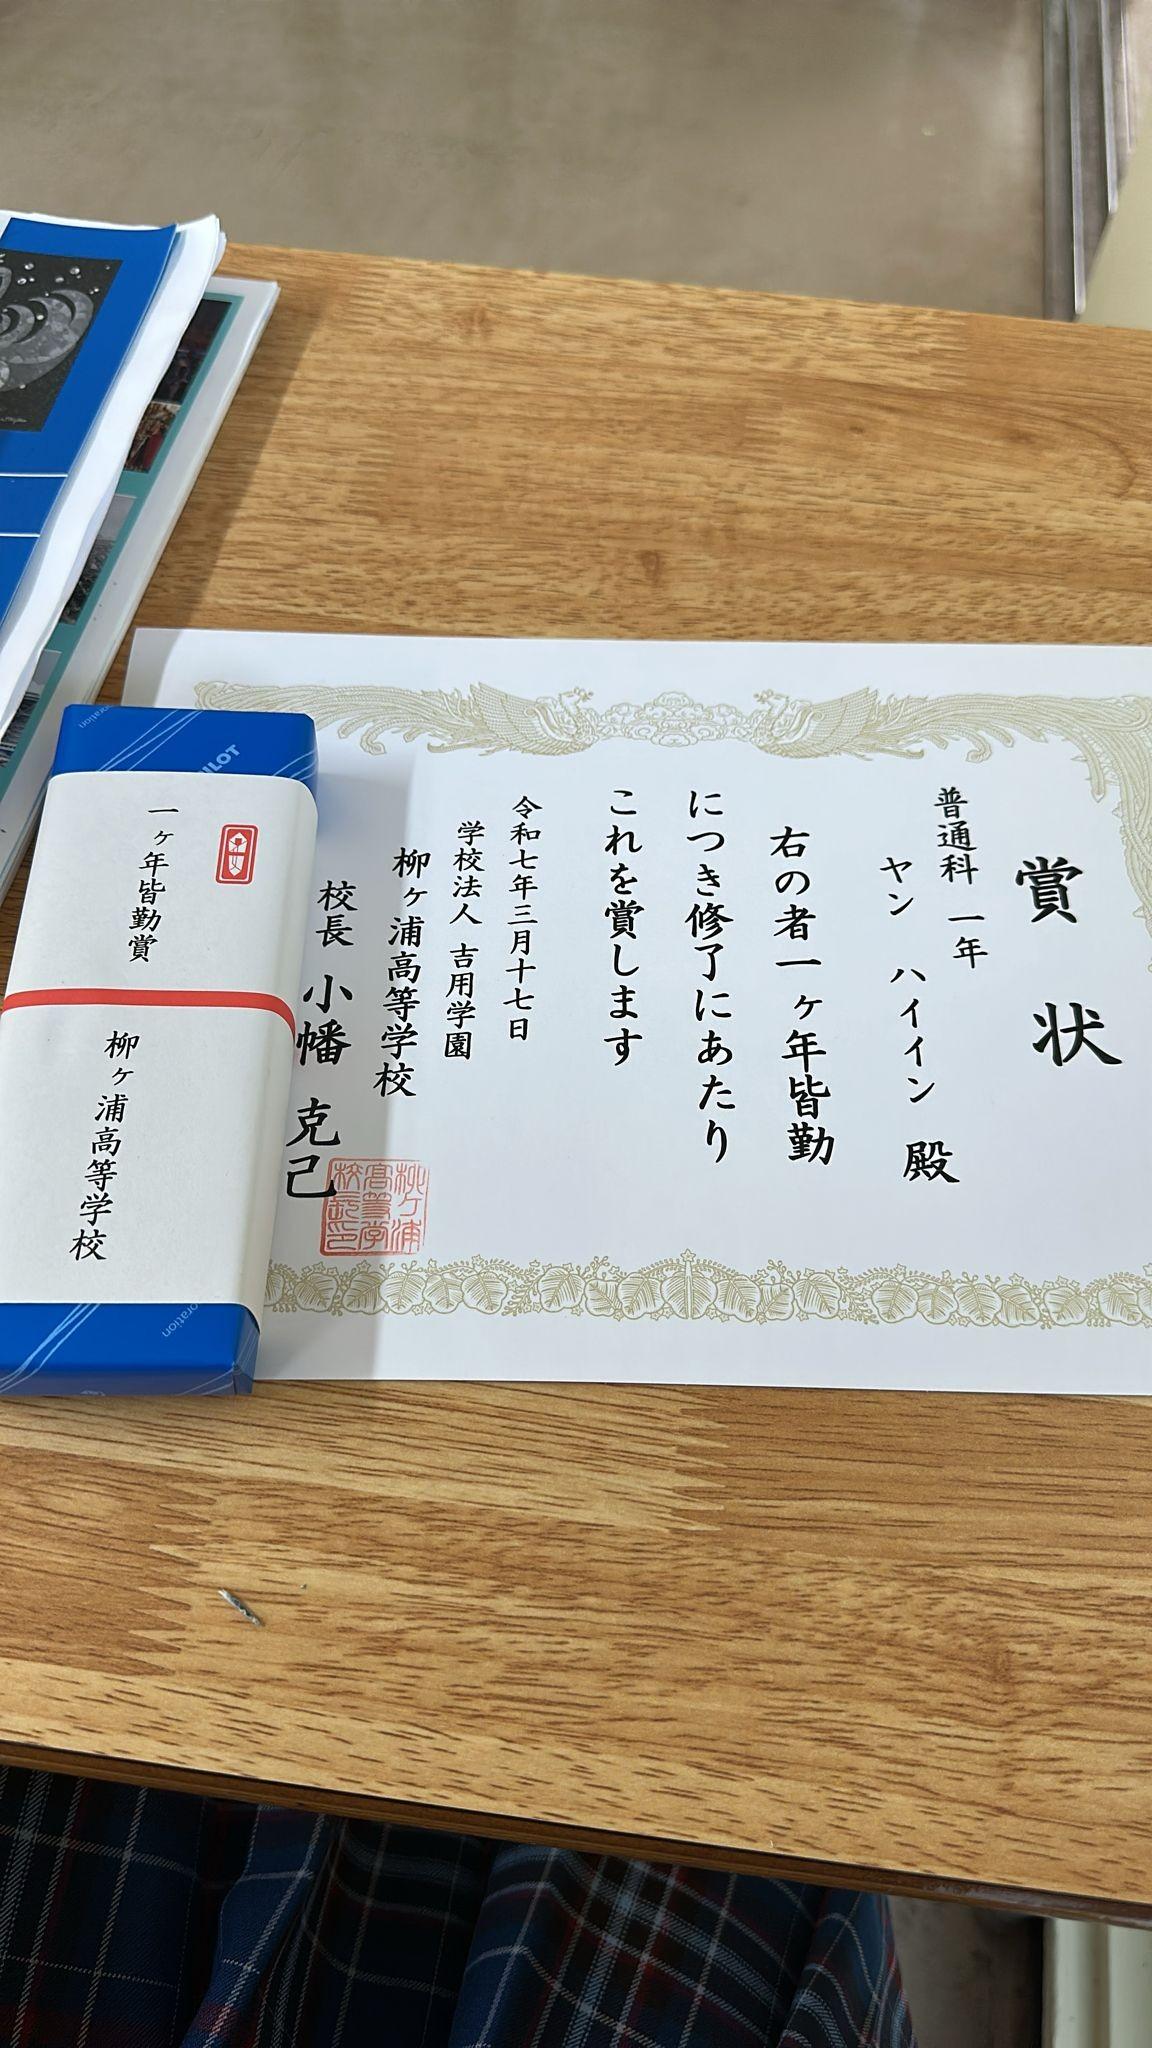 賞状
普通科 一年
ヤン ハイイン 殿
右の者一ヶ年皆勤
につき修了にあたり
これを賞します
令和七年三月十七日
学校法人 吉用学園
柳ヶ浦高等学校
校長 小幡 克己
柳ヶ浦
高等学
校長印
一ヶ年皆勤賞
柳ヶ浦高等学校
ILOT
oration
oration